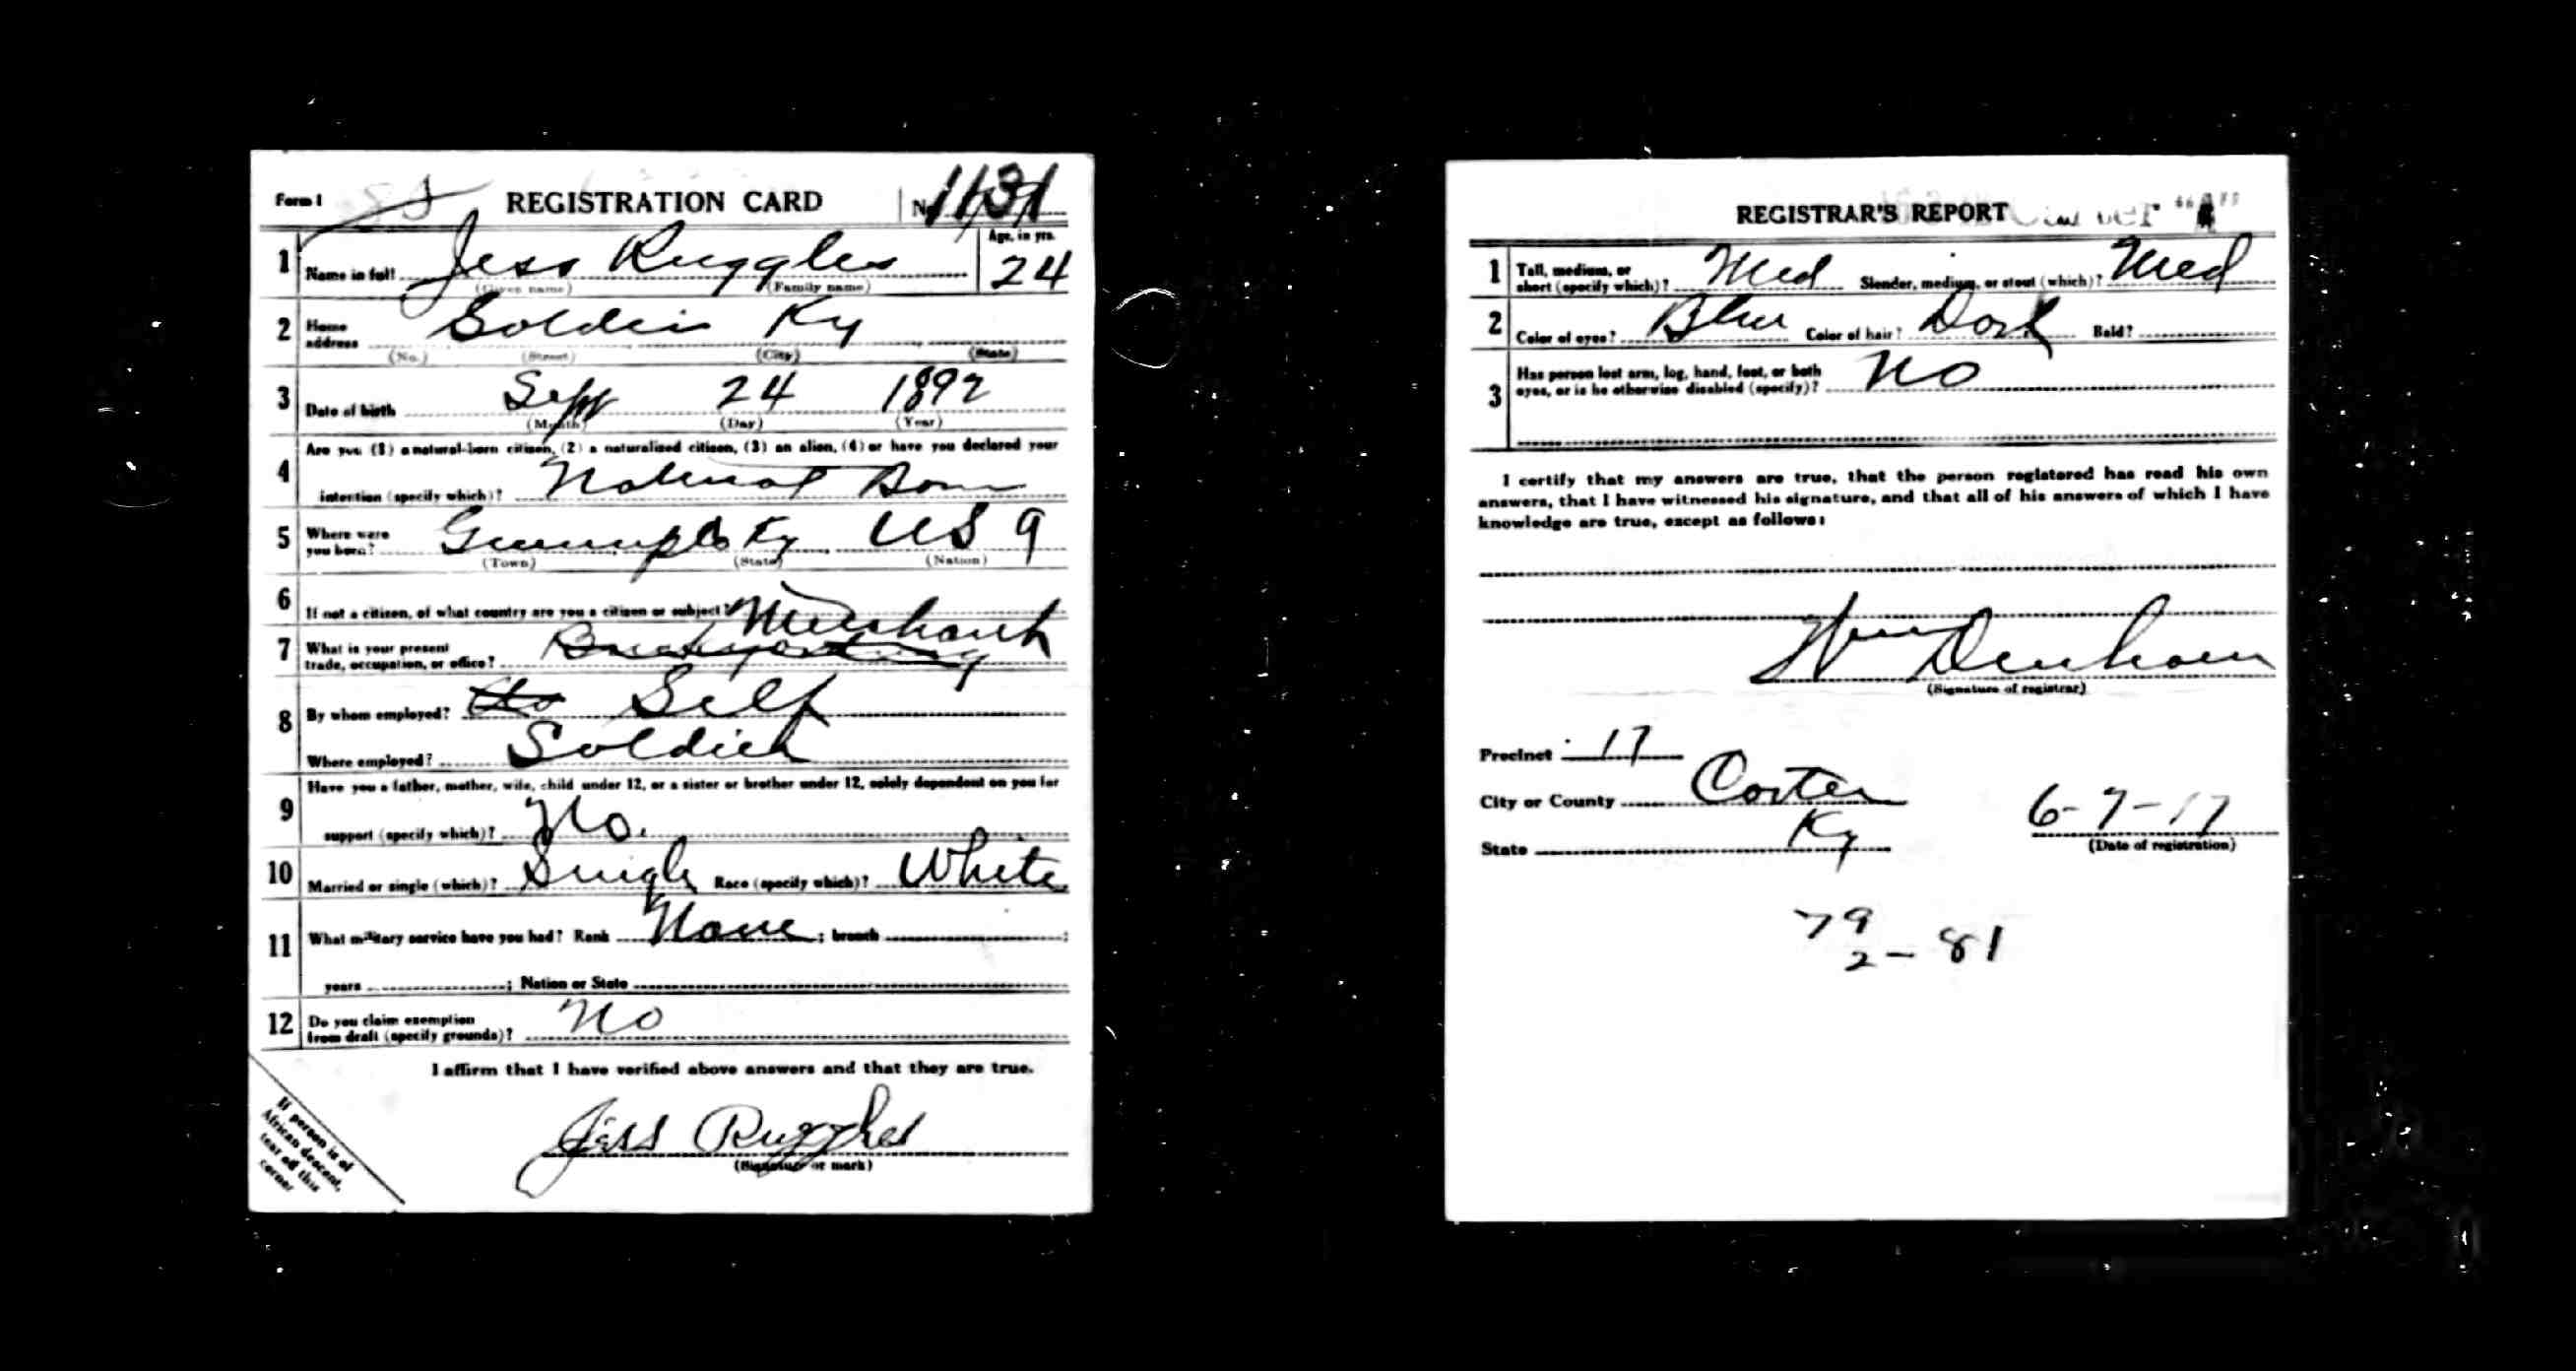 Form 1 REGISTRATION CARD No. 1131
1 Name in full Jess Ruggles Age, in yrs. 24
(Given name) (Family name)
2 Home address Soldier Ky
(No.) (Street) (City) (State)
3 Date of birth Sept 24 1892
(Month) (Day) (Year)
4 Are you (1) a natural-born citizen, (2) a naturalized citizen, (3) an alien, (4) or have you declared your
intention (specify which)? Natural Born
5 Where were you born? Ky USA
(Town) (State) (Nation)
6 If not a citizen, of what country are you a citizen or subject?
7 What is your present trade, occupation, or office? Merchant
8 By whom employed? Self
Where employed? Soldier
9 Have you a father, mother, wife, child under 12, or a sister or brother under 12, solely dependent on you for
support (specify which)? No.
10 Married or single (which)? Single Race (specify which)? White
11 What military service have you had? Rank None ; branch ;
years ; Nation or State
12 Do you claim exemption from draft (specify grounds)? No
I affirm that I have verified above answers and that they are true.
Jess Ruggles
(Signature or mark)
If person is of
African descent,
tear off this
corner
REGISTRAR'S REPORT
1 Tall, medium, or short (specify which)? Med Slender, medium, or stout (which)? Med
2 Color of eyes? Blue Color of hair? Dark Bald?
3 Has person lost arm, leg, hand, foot, or both
eyes, or is he otherwise disabled (specify)? No
I certify that my answers are true, that the person registered has read his own
answers, that I have witnessed his signature, and that all of his answers of which I have
knowledge are true, except as follows:
Wm Denham
(Signature of registrar)
Precinct 17
City or County Carter
State Ky 6-7-17
(Date of registration)
79
2-81